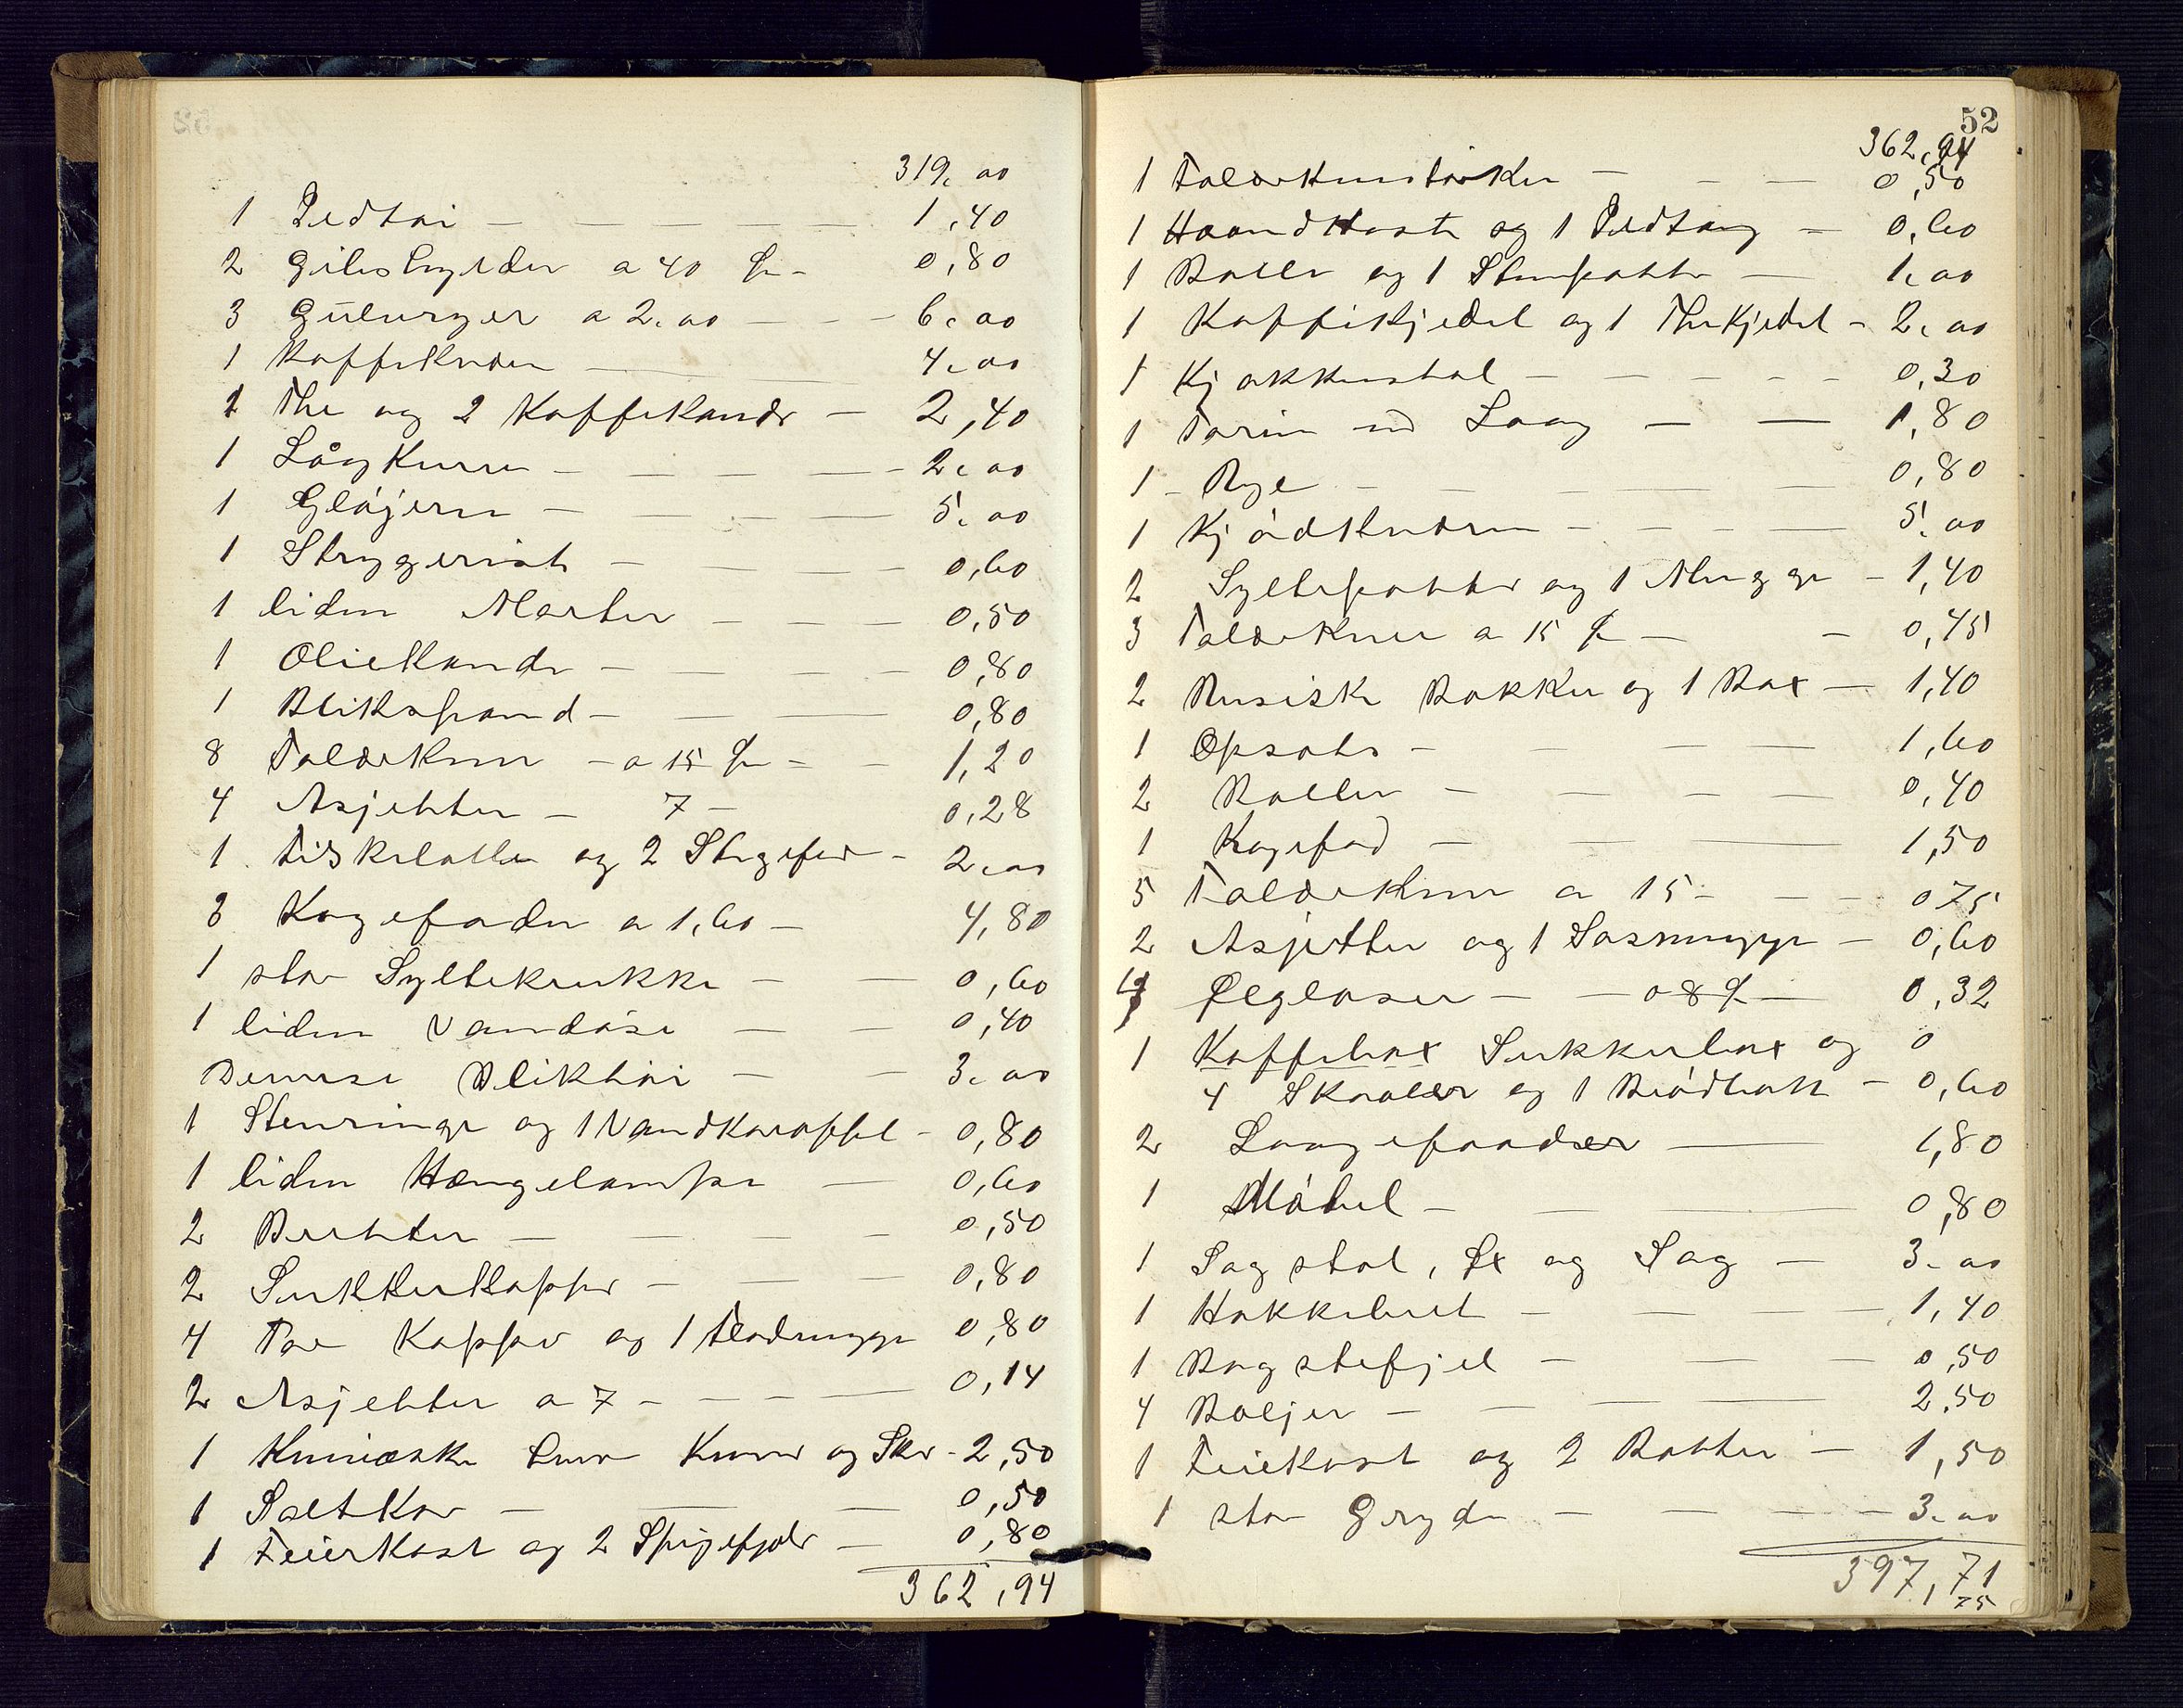 319. 00
1 Ildtøi — 1,40
2 a 40 Ør — 0,80
3 a 2.00 — 6.00
1 Kaffekværn — 4.00
1 The og 2 Kaffekander — 2,40
1 Lågkurv — 2.00
1 Gløjern — 5.00
1 Strygerist — 0,60
1 liden Morter — 0,50
1 Oliekande — 0,80
1 Blikspand — 0,80
8 Talderkner — a 15 Ør — 1,20
4 Asjetter — 7 — 0,28
1 og 2 Stegefad — 2.00
3 Kagefader a 1,60 — 4,80
1 stor Syltekrukke — 0,60
1 liden Vandøse — 0,40
Diverse Bliktøi — 3.00
1 og 1 Vandkaraffel — 0,80
1 liden Hængelampe — 0,60
2 — 0,50
2 Sukkerkopper — 0,80
4 Par Kopper og 1 Flødemugge 0,80
2 Asjetter a 7 — 0,14
1 Kniveske og Ske — 2,50
1 Saltkar — 0,50
1 Feierkost og 2 — 0,80
362,94
52
362,94
1 — 0,50
1 Haandkost og 1 Ildtang — 0,60
1 Balle og 1 — 1.00
1 Kaffikjedel og 1 Thekjedel — 2.00
1 Kjøkkenstol — 0,30
1 Terin m Laag — 1,80
1 — 0,80
1 Kjødkværn — 5.00
2 Syltepotter og 1 Mugge — 1,40
3 Talderkner a 15 Ør — 0,45
2 Rusiske Bakker og 1 Bax — 1,40
1 Opsats — 1,60
2 Boller — 0,40
1 Kagefad — 1,50
5 Talderkner a 15 — 075
2 Asjetter og 1 Sosmugge — 0,60
4 Ølglaser — a 8 Ør — 0,32
1 Kaffebax Sukkerbax og 0
4 Skaaler og 1 Brødbakk — 0,60
2 Laagefaader — 1,80
1 Møbel — 0,80
1 Sagstol, Øx og Sag — 3.00
1 Hakkebret — 1,40
1 Bagstefjel — 0,50
4 Baljer — 2,50
1 Feiekost og 2 Bøtter — 1,50
1 stor Gryde — 3.00
397,71
75